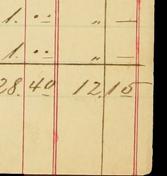 1. .. „ —
1. .. „ —
28.40 12.15